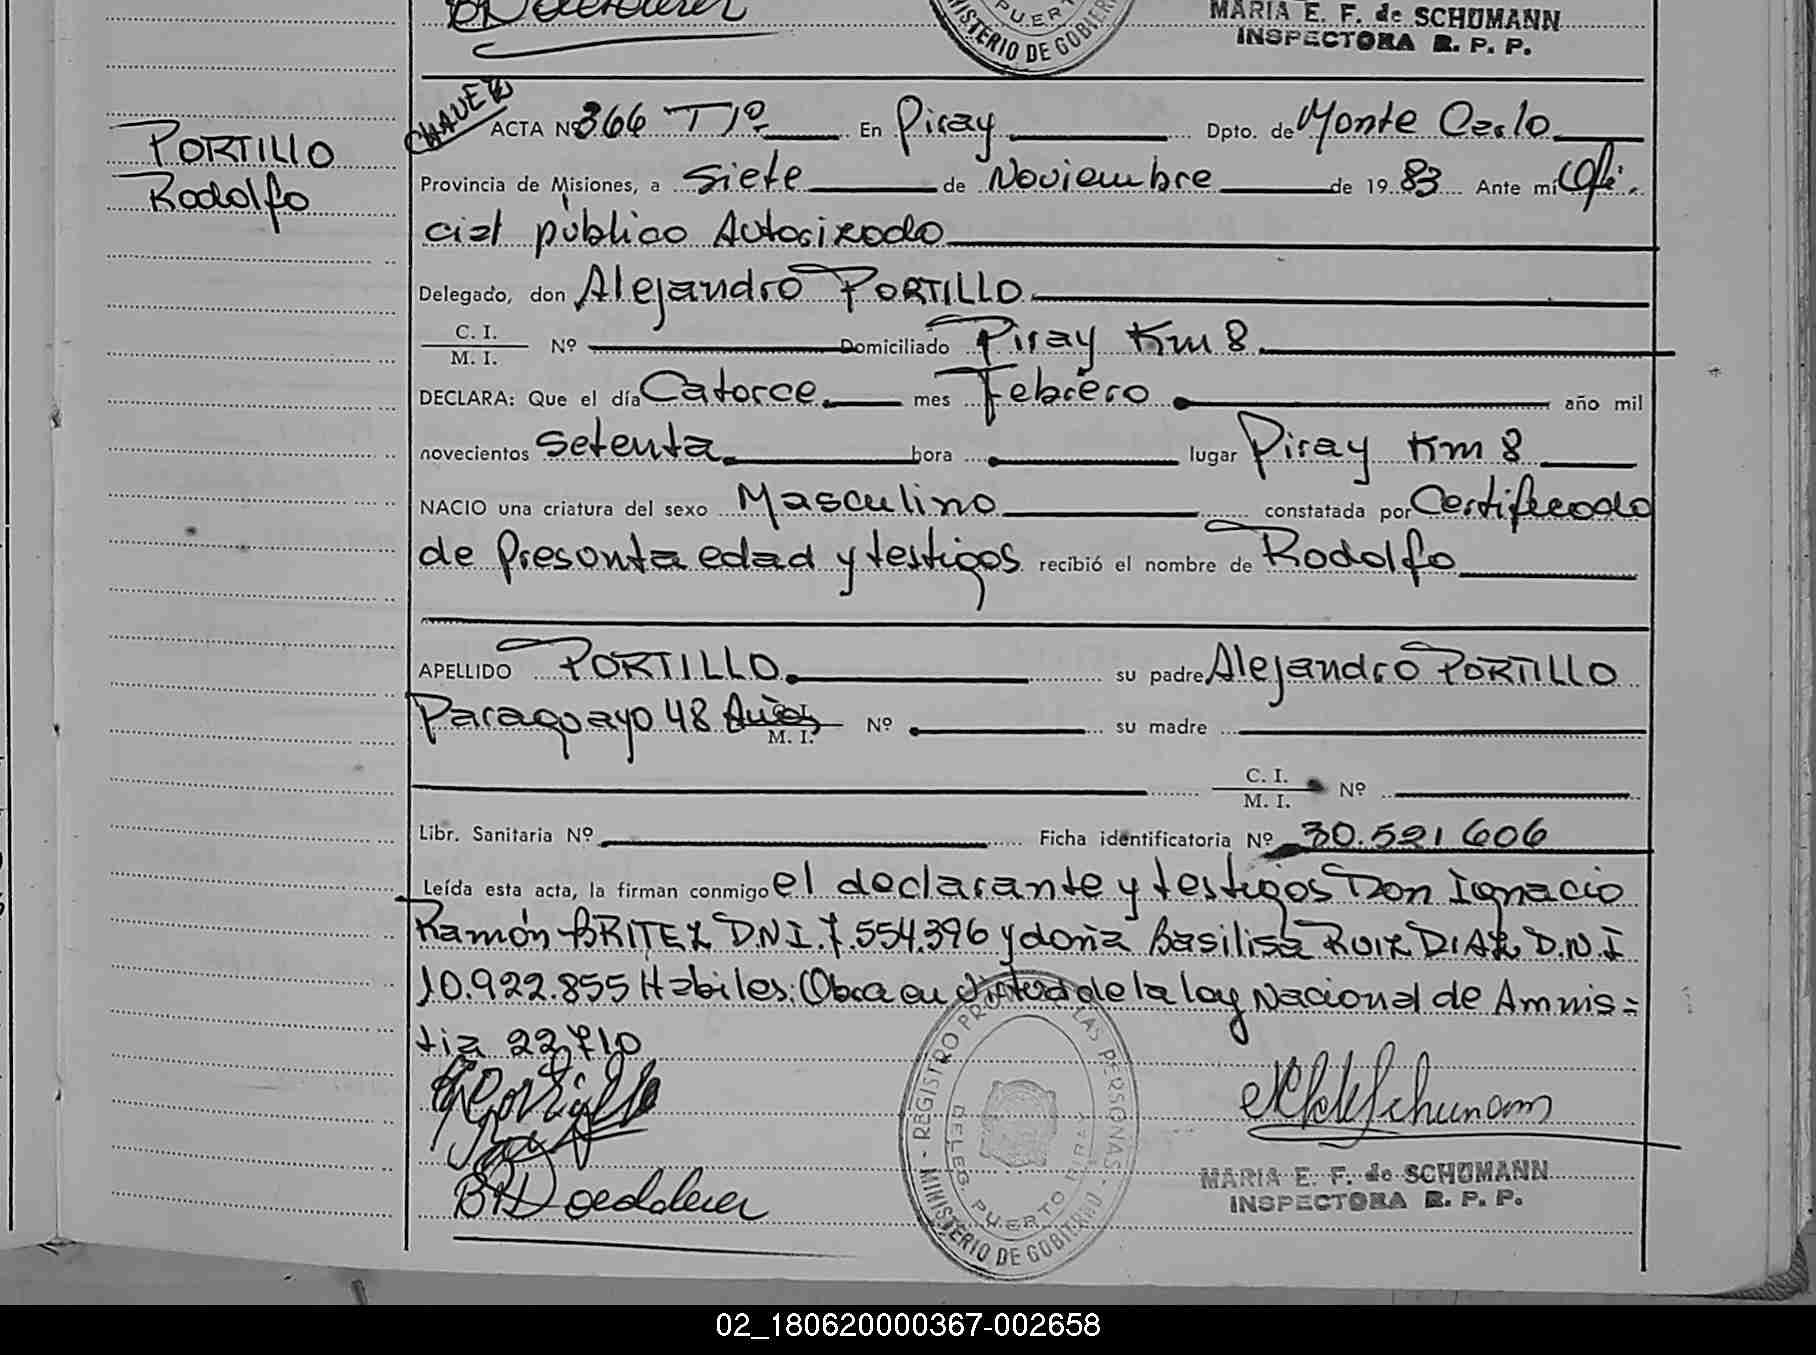 MARIA E. F. de SCHUMANN
INSPECTORA R. P. P.
MINISTERIO DE GOBIER
PORTILLO
Rodolfo
CHAVEZ
ACTA Nº 366 T1º En Piray Dpto. de Monte Carlo
Provincia de Misiones, a siete de Noviembre de 1983 Ante mi Ofi-
cial público Autorizado
Delegado, don Alejandro PORTILLO
C. I.
M. I. Nº Domiciliado Piray Km 8
DECLARA: Que el día Catorce mes Febrero año mil
novecientos setenta hora lugar Piray Km 8
NACIO una criatura del sexo Masculino constatada por Certificado
de Presonta edad y testigos recibió el nombre de Rodolfo
APELLIDO PORTILLO su padre Alejandro PORTILLO
Paraguayo 48 Años M. I. Nº su madre
C. I.
M. I. Nº
Libr. Sanitaria Nº Ficha identificatoria Nº 30.521 606
Leída esta acta, la firman conmigo el declarante y testigos Don Ignacio
Ramón BRITEZ D.N.I. 7.554.396 y doña Basilisa RUIZ DIAZ D.N.I
10.922.855 Habiles: Obra en virtud de la ley Nacional de Amnis=
tia 22.710
REGISTRO PROV. LAS PERSONAS - MINISTERIO DE GOBIERNO -
DELEG PUERTO PIRAY
MARIA E. F. de SCHUMANN
INSPECTORA R. P. P.
02_180620000367-002658